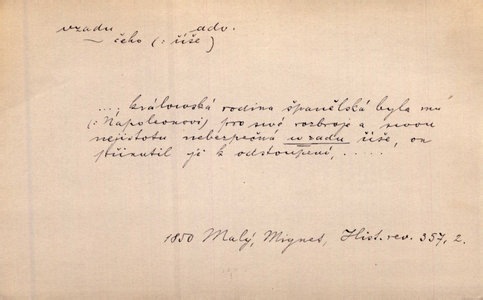 vzadu adv.
~ čeho (: říše)
...; králowská rodina španělská byla mu
(: Napoleonovi) pro swé rozbroje a swou
nejistotu nebezpečná w zadu říše, on
přinutil ji k odstoupení, .....
1850 Malý, Mignet, Hist. rev. 357, 2.